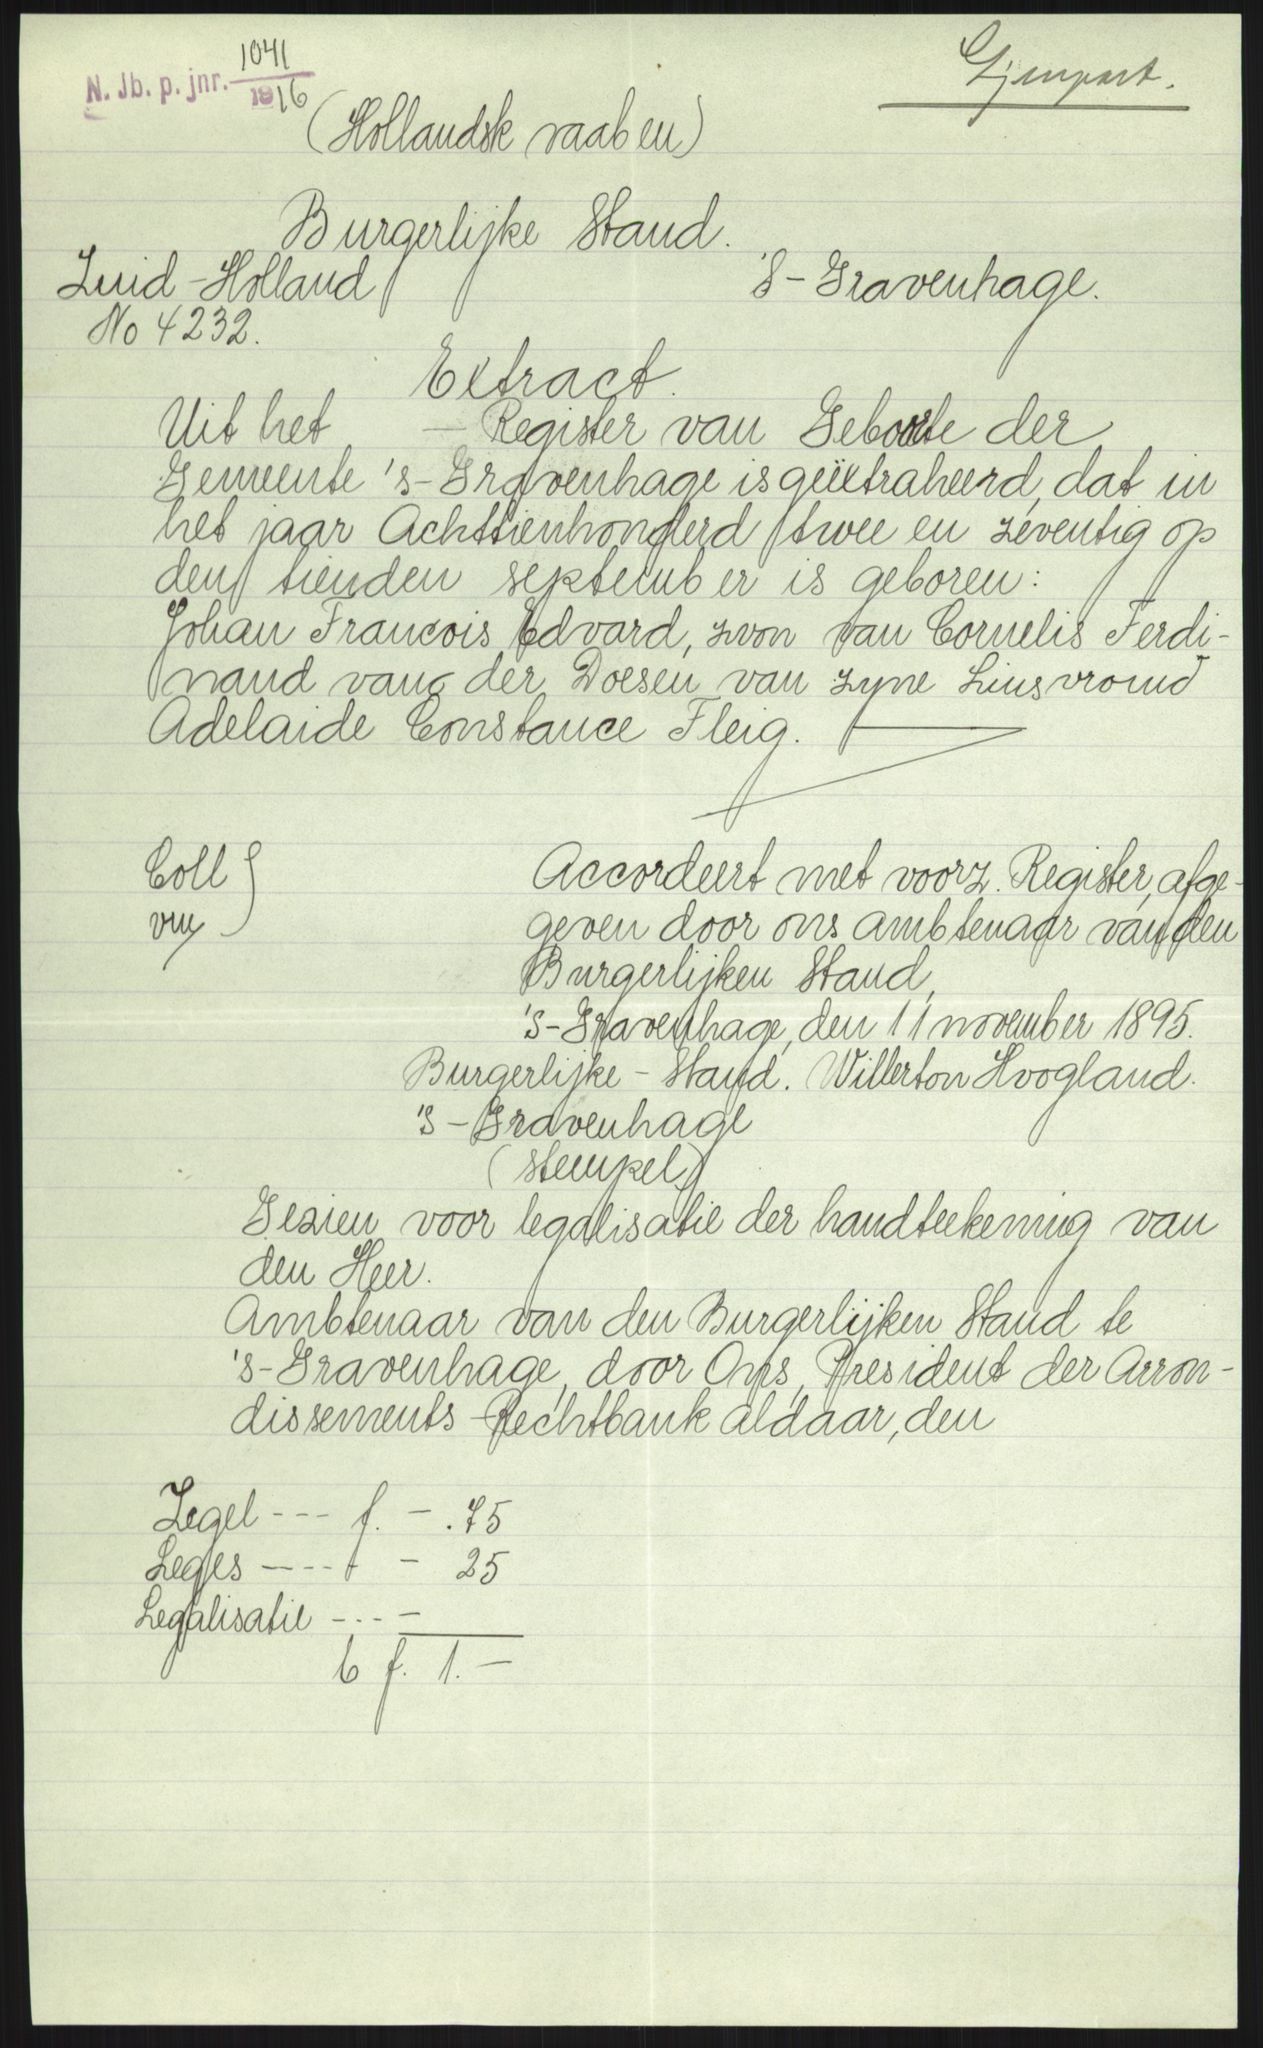 N. Jb. p. jnr. 1041
1916
Gjenpart.
(Hollandsk vaaben)
Burgerlijke Stand.
Zuid-Holland
's-Gravenhage.
No 4232.
Extract.
Uit het — Register van Geboorte der
Gemeente 's-Gravenhage is geëxtraheerd, dat in
het jaar Achttienhonderd twee en zeventig op
den tienden september is geboren:
Johan Francois Edvard, zvon van Cornelis Ferdi-
nand vang der Doesen van zyne
Adelaide Constance Fleig.
Coll
Accordeert met voorz. Register, afge-
geven door ons ambtenaar van den
Burgerlijken Stand,
's-Gravenhage, den 11 november 1895.
Burgerlijke - Stand. Willerton Hvogland.
's-Gravenhage
(stempel)
Gezien voor legalisatie der handteekening van
den Heer.
Ambtenaar van den Burgerlijken Stand te
's-Gravenhage, door Ons, President der Arron-
dissements-Rechtbank aldaar, den
Zegel --- f. - .75
Leges ---- - 25
Legalisatie --- -
6 f. 1. -